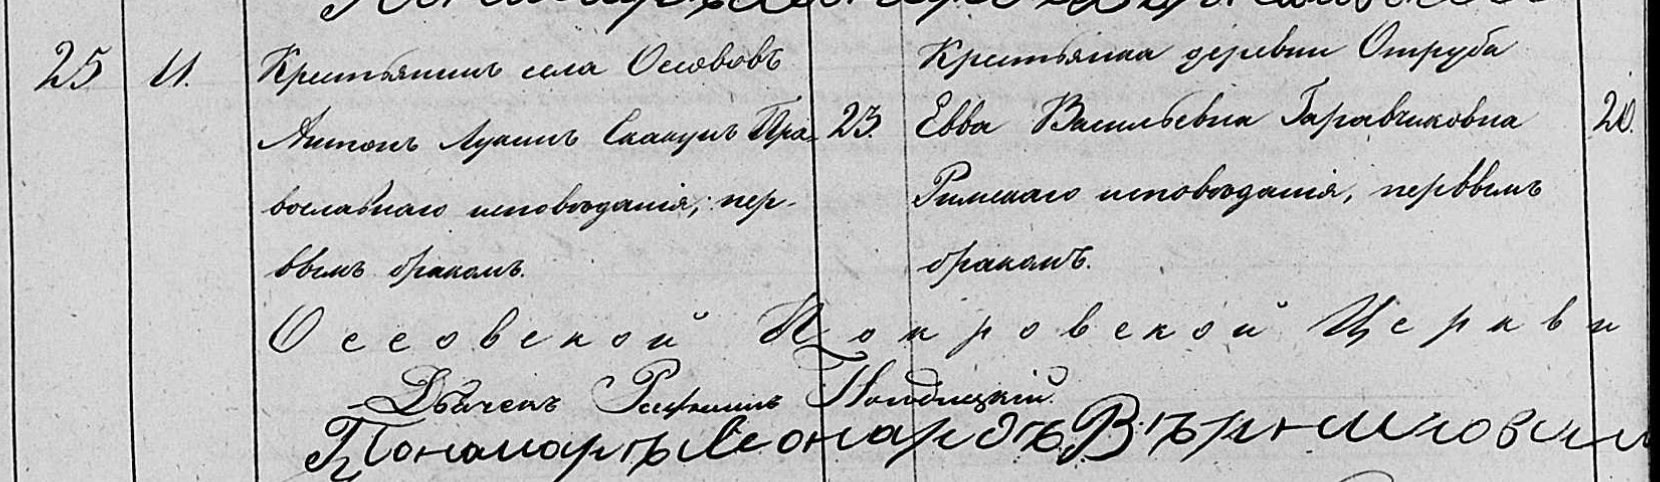 25 11. Крестьянинъ села Оссововъ
Антонъ Лукинъ Скакунъ Пра- 23.
вославнаго исповѣданія, пер-
ввымъ бракомъ.
Крестьянка деревни Отруба
Евва Васильевна Гаравчиковна 20.
Римскаго исповѣданія, перввымъ
бракомъ.
Оссовской Покровской Церкви
Дьячекъ
Пономарь Леонардъ